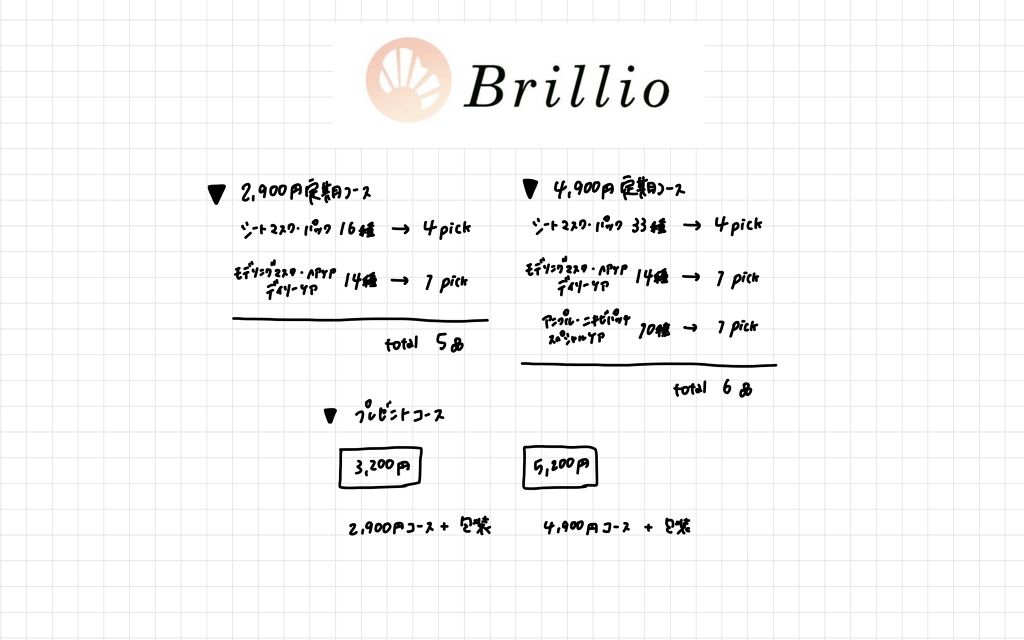 Brillio
▼ 2,900円定期コース
シートマスク・パック 16種 → 4 pick
モデリングマスク・APケア
デイリーケア 14種 → 1 pick
total 5品
▼ 4,900円定期コース
シートマスク・パック 33種 → 4 pick
モデリングマスク・APケア
デイリーケア 14種 → 1 pick
アンプル・ニキビパッチ
スペシャルケア 10種 → 1 pick
total 6品
▼ プレゼントコース
3,200円
2,900円コース + 包装
5,200円
4,900円コース + 包装